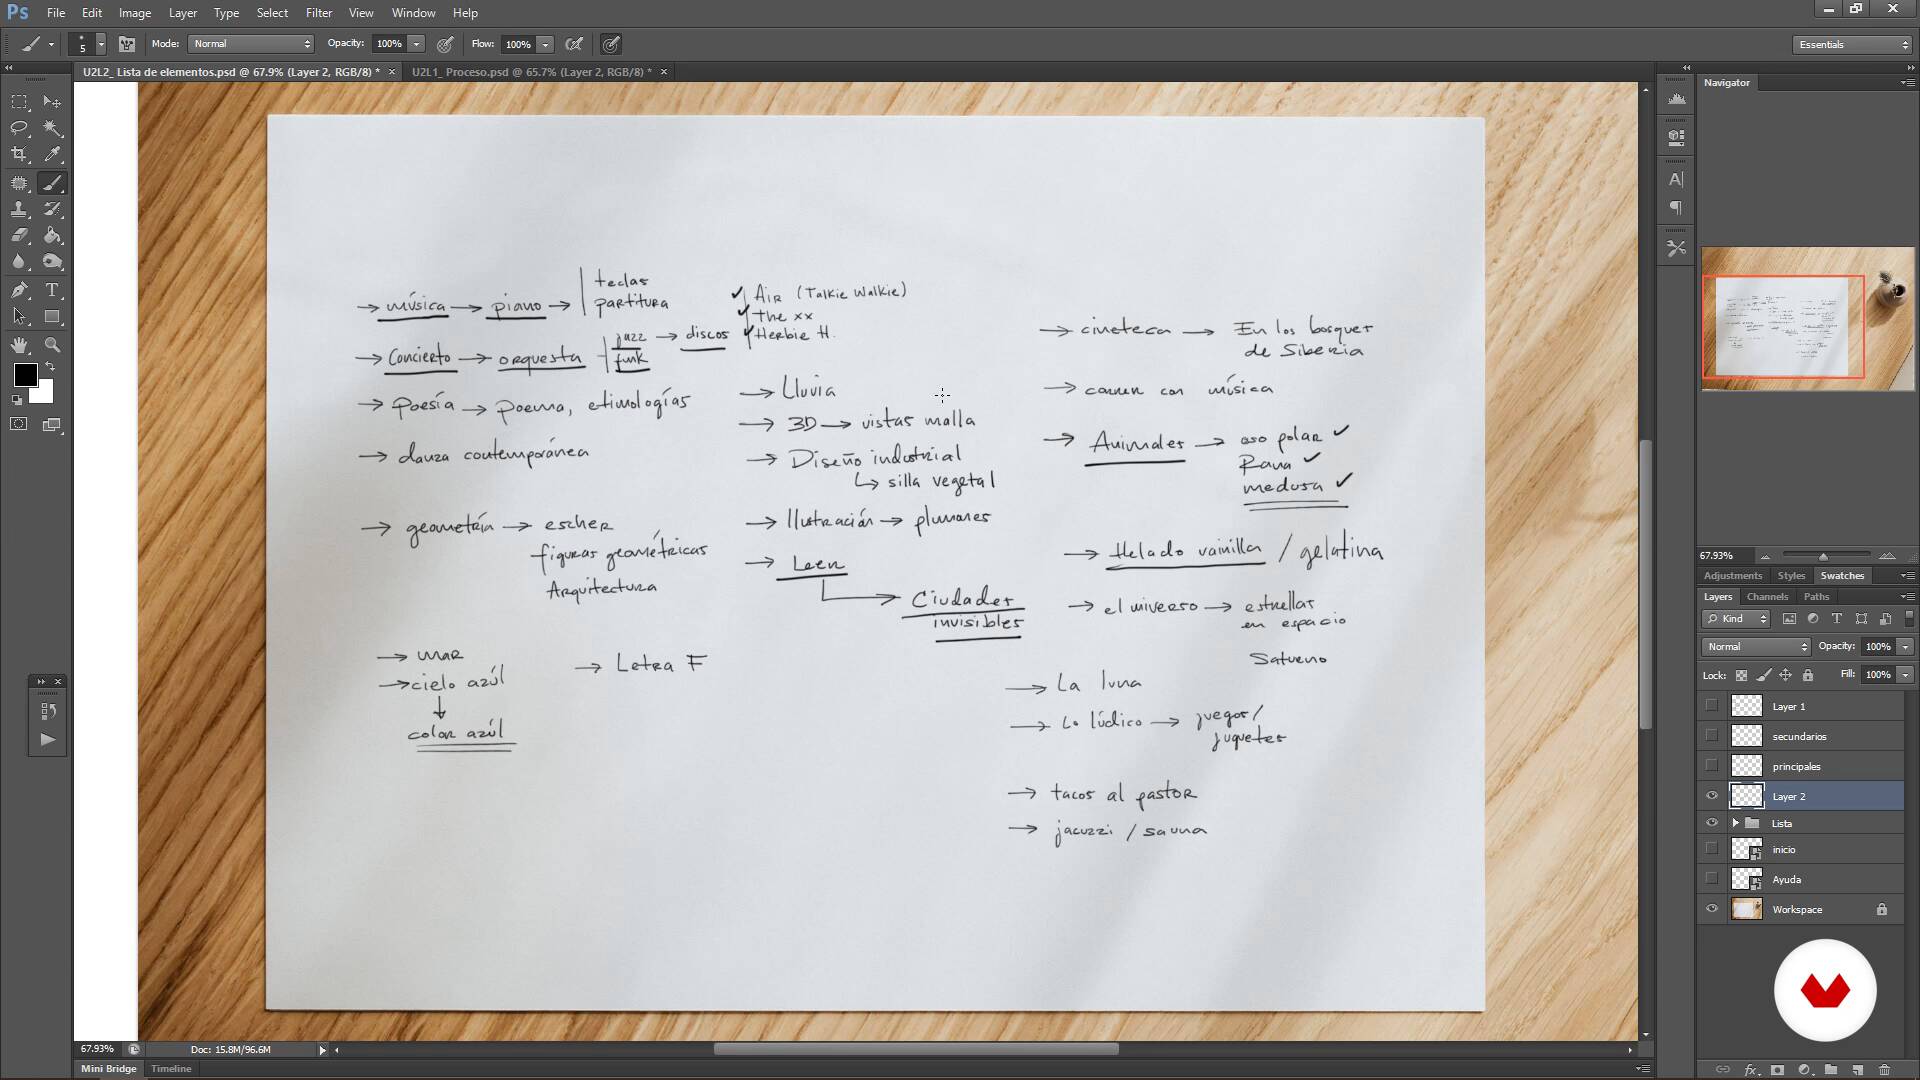 Ps File Edit Image Layer Type Select Filter View Window Help
5 Mode: Normal Opacity: 100% Flow: 100% Essentials
U2L2_ Lista de elementos.psd @ 67.9% (Layer 2, RGB/8) * × U2L1_ Proceso.psd @ 65.7% (Layer 2, RGB/8) * ×
→ música → piano → teclas
partitura
→ Concierto → orquesta jazz → discos
funk
✓ Air (Talkie Walkie)
✓ the xx
✓ Herbie H.
→ poesía → poema, etimologías
→ danza contemporánea
→ geometría → escher
figuras geométricas
Arquitectura
→ mar
→ cielo azúl
↓
color azúl
→ Letra F
→ Lluvia
→ 3D → vistas malla
→ Diseño industrial
↳ silla vegetal
→ Ilustración → plumones
→ Leer
→ Ciudades
invisibles
→ cineteca → En los bosques
de Siberia
→ correr con música
→ Animales → oso polar ✓
Rana ✓
medusa ✓
→ Helado vainilla / gelatina
→ el universo → estrellas
en espacio
Saturno
→ La luna
→ Lo lúdico → juegos/
juguetes
→ tacos al pastor
→ jacuzzi / sauna
Navigator
67.93%
Adjustments Styles Swatches
Layers Channels Paths
Kind
Normal Opacity: 100%
Lock: Fill: 100%
Layer 1
secundarios
principales
Layer 2
Lista
inicio
Ayuda
Workspace
67.93% Doc: 15.8M/96.6M
Mini Bridge Timeline